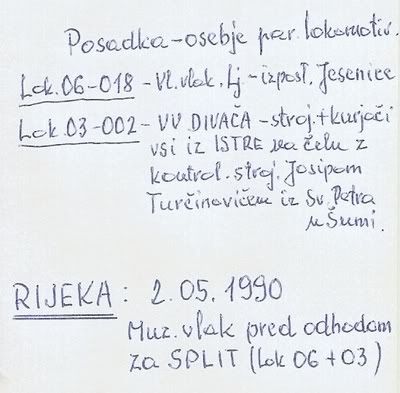 Posadka-osebje par. lokomotiv.
Lok. 06-018 - Vl. vlak. Lj - izpost. Jesenice
Lok. 03-002 - VV DIVAČA - stroj. + kurjači
vsi iz ISTRE na čelu z
kontrol. stroj. Josipom
Turčinovičem iz Sv. Petra
u Šumi.
RIJEKA : 2.05.1990
Muz. vlak pred odhodom
za SPLIT (Lok 06 + 03)